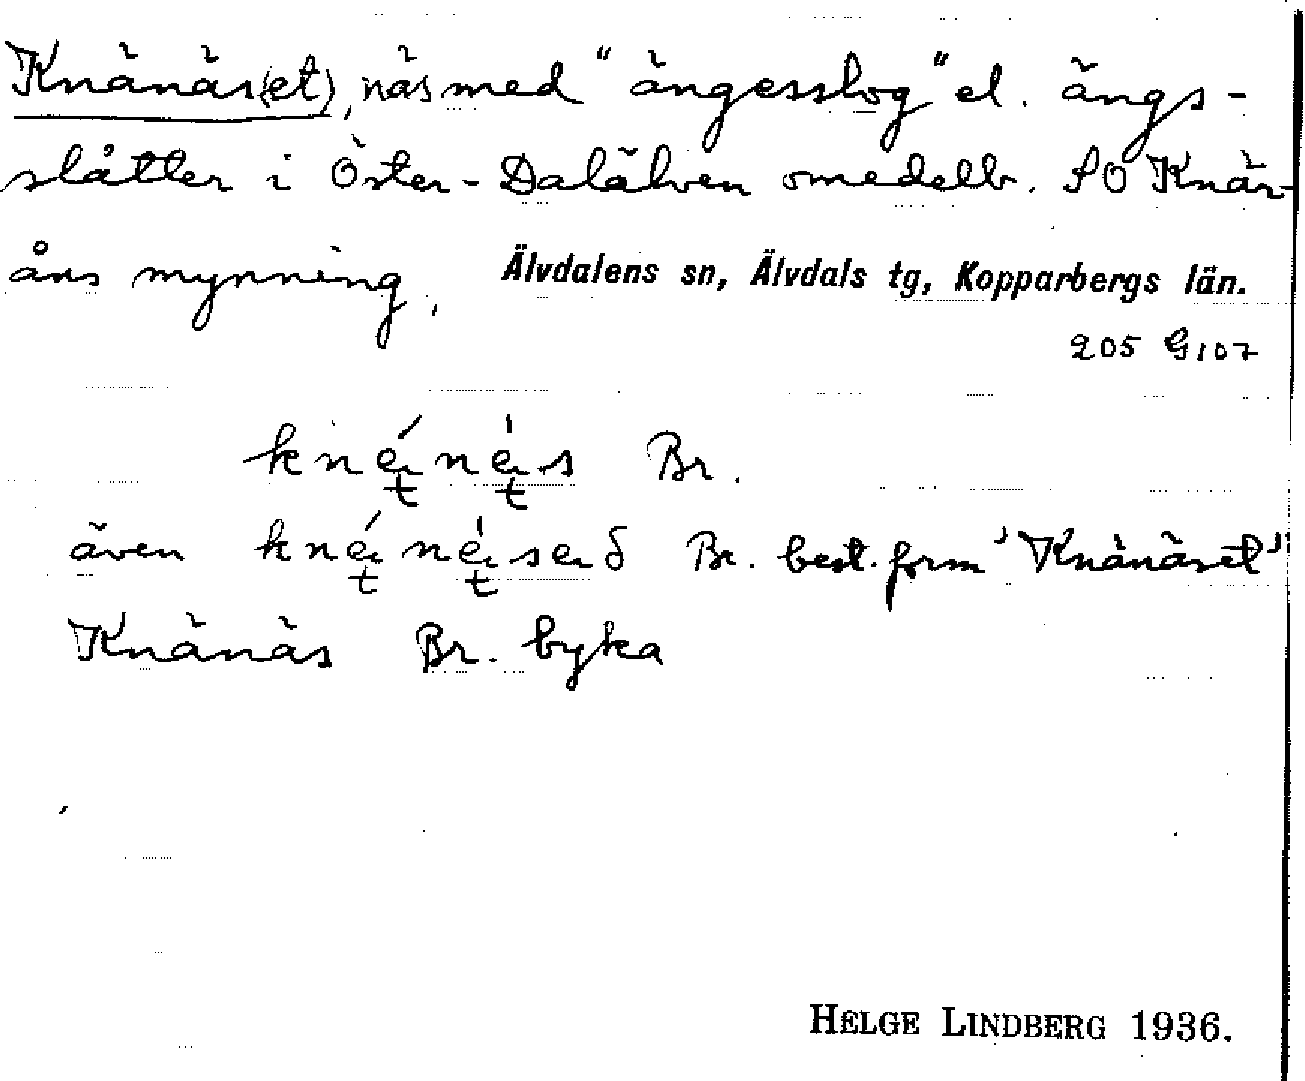 Knänäs(et), näs med "ängesslog" el. ängs-
slåtter i Öster-Dalälven omedelb. SO Knär-
åns mynning, Älvdalens sn, Älvdals tg, Kopparbergs län.
205 G107
Br.
även Br. best. form 'Knänäset'
Knänäs Br. byka
HELGE LINDBERG 1936.